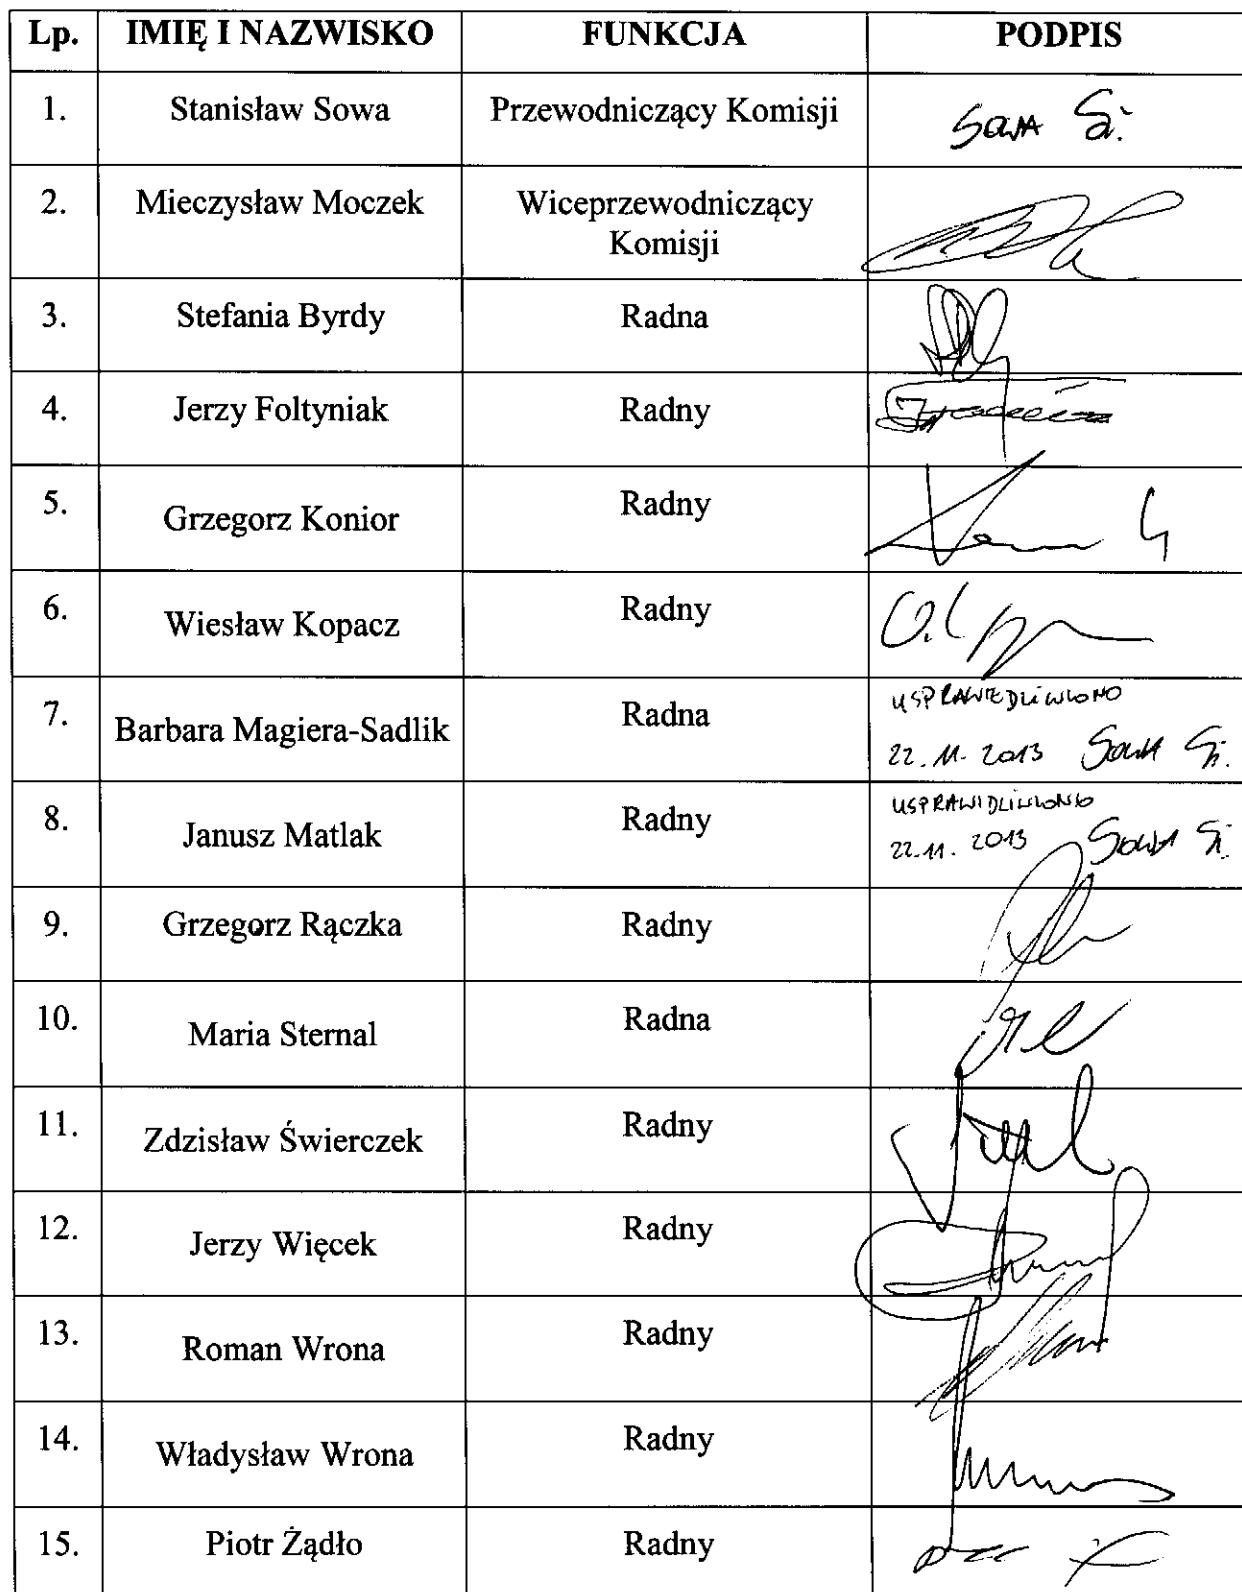 Lp. IMIĘ I NAZWISKO FUNKCJA PODPIS
1. Stanisław Sowa Przewodniczący Komisji SOWA St.
2. Mieczysław Moczek Wiceprzewodniczący
Komisji
3. Stefania Byrdy Radna
4. Jerzy Foltyniak Radny
5. Grzegorz Konior Radny
6. Wiesław Kopacz Radny
7. Barbara Magiera-Sadlik Radna USPRAWIEDLIWIONO
22.11.2013 SOWA St.
8. Janusz Matlak Radny USPRAWIDLIWIONO
22.11.2013 SOWA St.
9. Grzegorz Rączka Radny
10. Maria Sternal Radna
11. Zdzisław Świerczek Radny
12. Jerzy Więcek Radny
13. Roman Wrona Radny
14. Władysław Wrona Radny
15. Piotr Żądło Radny